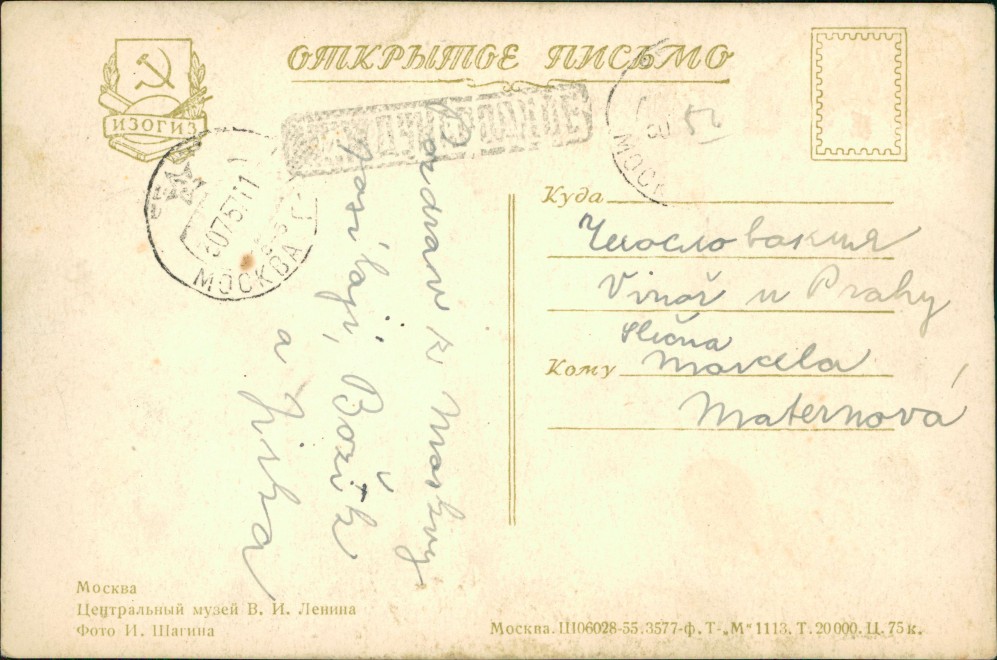 ОТКРЫТОЕ ПИСЬМО
ИЗОГИЗ
МЕЖДУНАРОДНОЕ
МОСКВА
МОСК
50
Pozdrav z Moskvy
zasílají, Božík
a Jirka
Куда
Чехословакия
Vinoř u Prahy
Кому
Slečna
Marcela
Maternová
Москва
Центральный музей В. И. Ленина
Фото И. Шагина
Москва. Ш06028-55. 3577-ф. Т-„М“ 1113. Т. 20 000. Ц. 75 к.